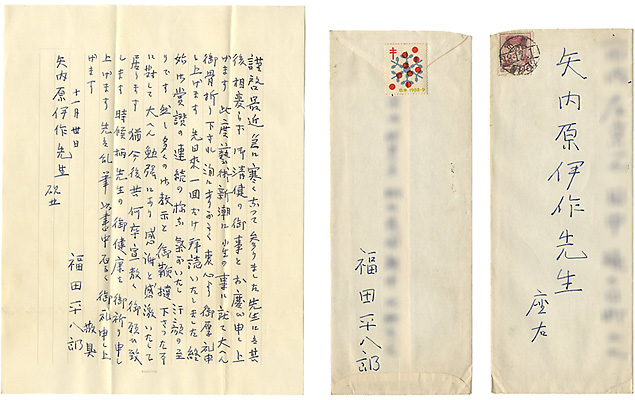 謹啓 最近 急に寒くなって参りました 先生にも其
後相変らず 御清健の御事とお慶び申し上
げます 此度藝術新潮に小生の事に就て大へん
御骨折り下され 洵に有がたく衷心より御厚礼申
し上げます 先日来一回だけ拝読いたしました 終
始御賞讃の連続の 気がいたし 汗顔の至
りです 然し多くの御教示と御鞭撻下さった
に對して大へん勉強になり 感謝と感激いたして
居ります 猶今後共何卒宜敷く御願ひ致
します 時候柄先生の御健康を御祈り申し
上げます 先は乱筆以書中 御礼申し上
げます
敬具
十一月廿日
福田平八郎
矢内原伊作先生
福田平八郎
1958-9
矢内原伊作先生
座右